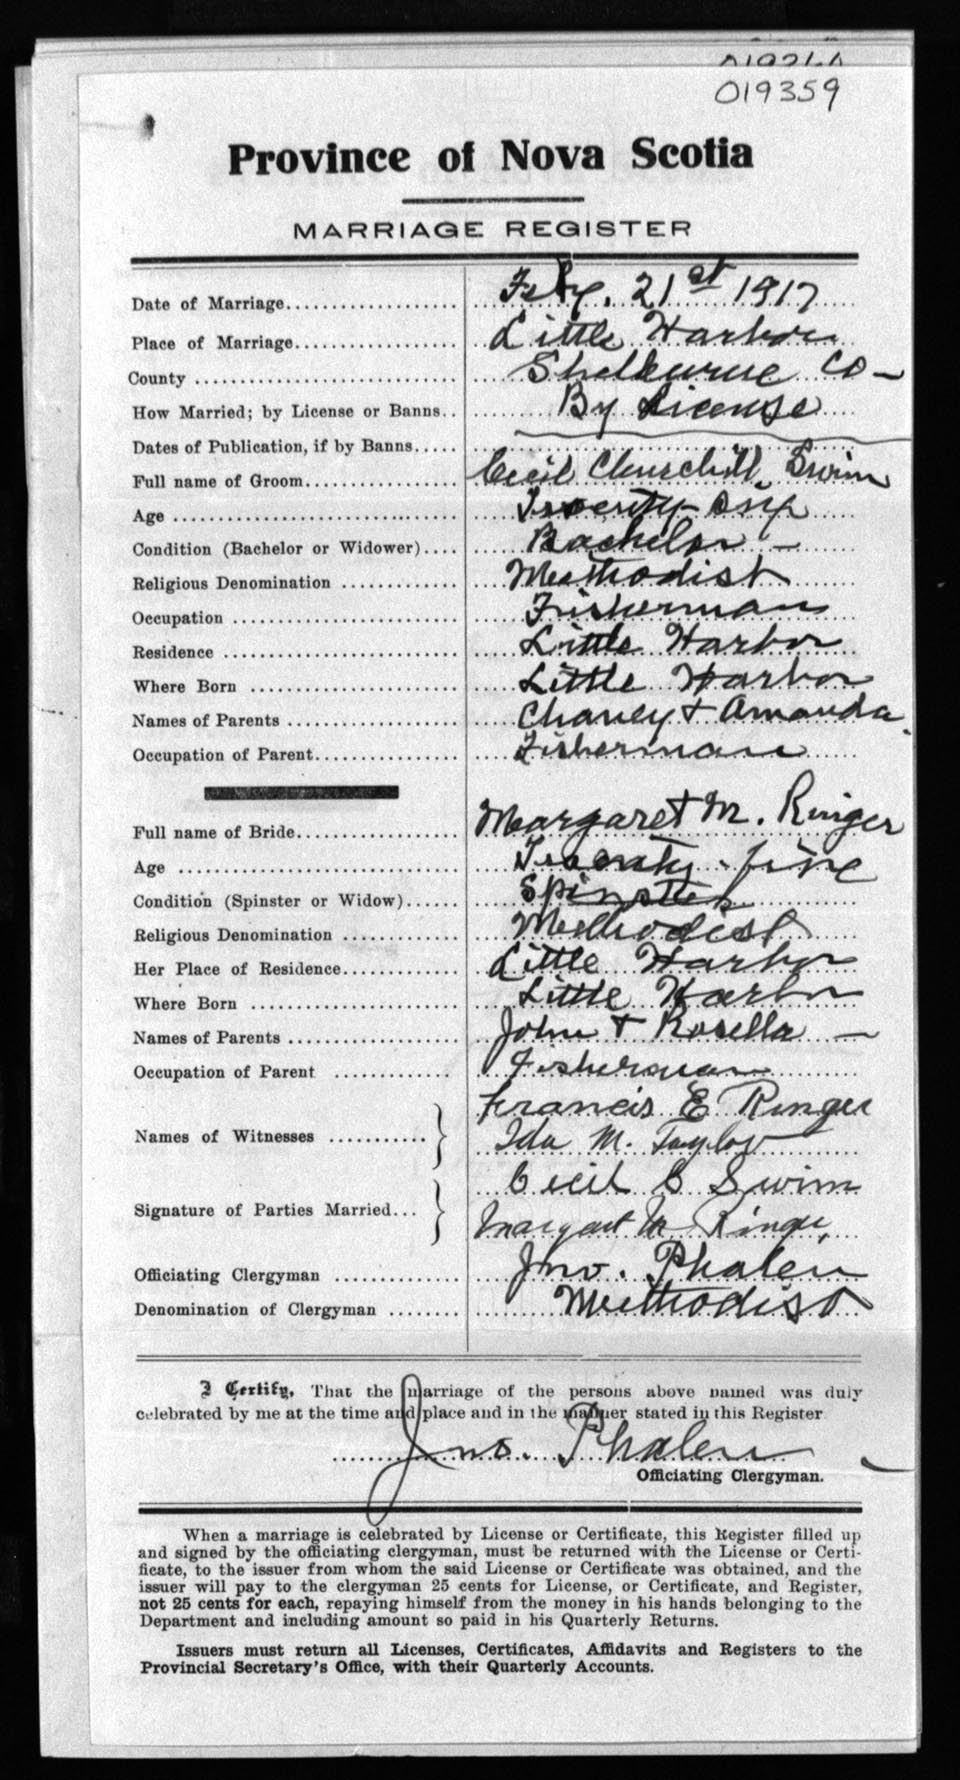 019359
Province of Nova Scotia
MARRIAGE REGISTER
Date of Marriage Feby. 21st 1917
Place of Marriage Little Harbor
County Shelburne Co
How Married; by License or Banns By License
Dates of Publication, if by Banns
Full name of Groom Cecil Churchill Swim
Age Twenty-one
Condition (Bachelor or Widower) Bachelor
Religious Denomination Methodist
Occupation Fisherman
Residence Little Harbor
Where Born Little Harbor
Names of Parents Chaney + Amanda
Occupation of Parent Fisherman
Full name of Bride Margaret M. Ringer
Age Twenty-five
Condition (Spinster or Widow) Spinster
Religious Denomination Methodist
Her Place of Residence Little Harbor
Where Born Little Harbor
Names of Parents John + Rosella
Occupation of Parent Fisherman
Names of Witnesses Francis E Ringer
Ida M. Taylor
Signature of Parties Married Cecil C Swim
Margaret M Ringer
Officiating Clergyman Jno. Phalen
Denomination of Clergyman Methodist
I Certify, That the marriage of the persons above named was duly
celebrated by me at the time and place and in the manner stated in this Register
Jno. Phalen
Officiating Clergyman.
When a marriage is celebrated by License or Certificate, this Register filled up
and signed by the officiating clergyman, must be returned with the License or Certi-
ficate, to the issuer from whom the said License or Certificate was obtained, and the
issuer will pay to the clergyman 25 cents for License, or Certificate, and Register,
not 25 cents for each, repaying himself from the money in his hands belonging to the
Department and including amount so paid in his Quarterly Returns.
Issuers must return all Licenses, Certificates, Affidavits and Registers to the
Provincial Secretary's Office, with their Quarterly Accounts.